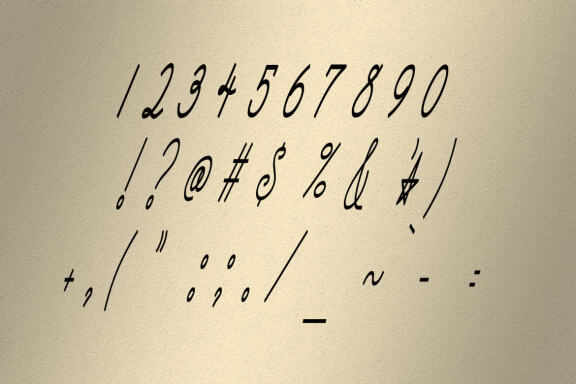 1234567890
!?@#$%&*)
+,(":;./_~-=